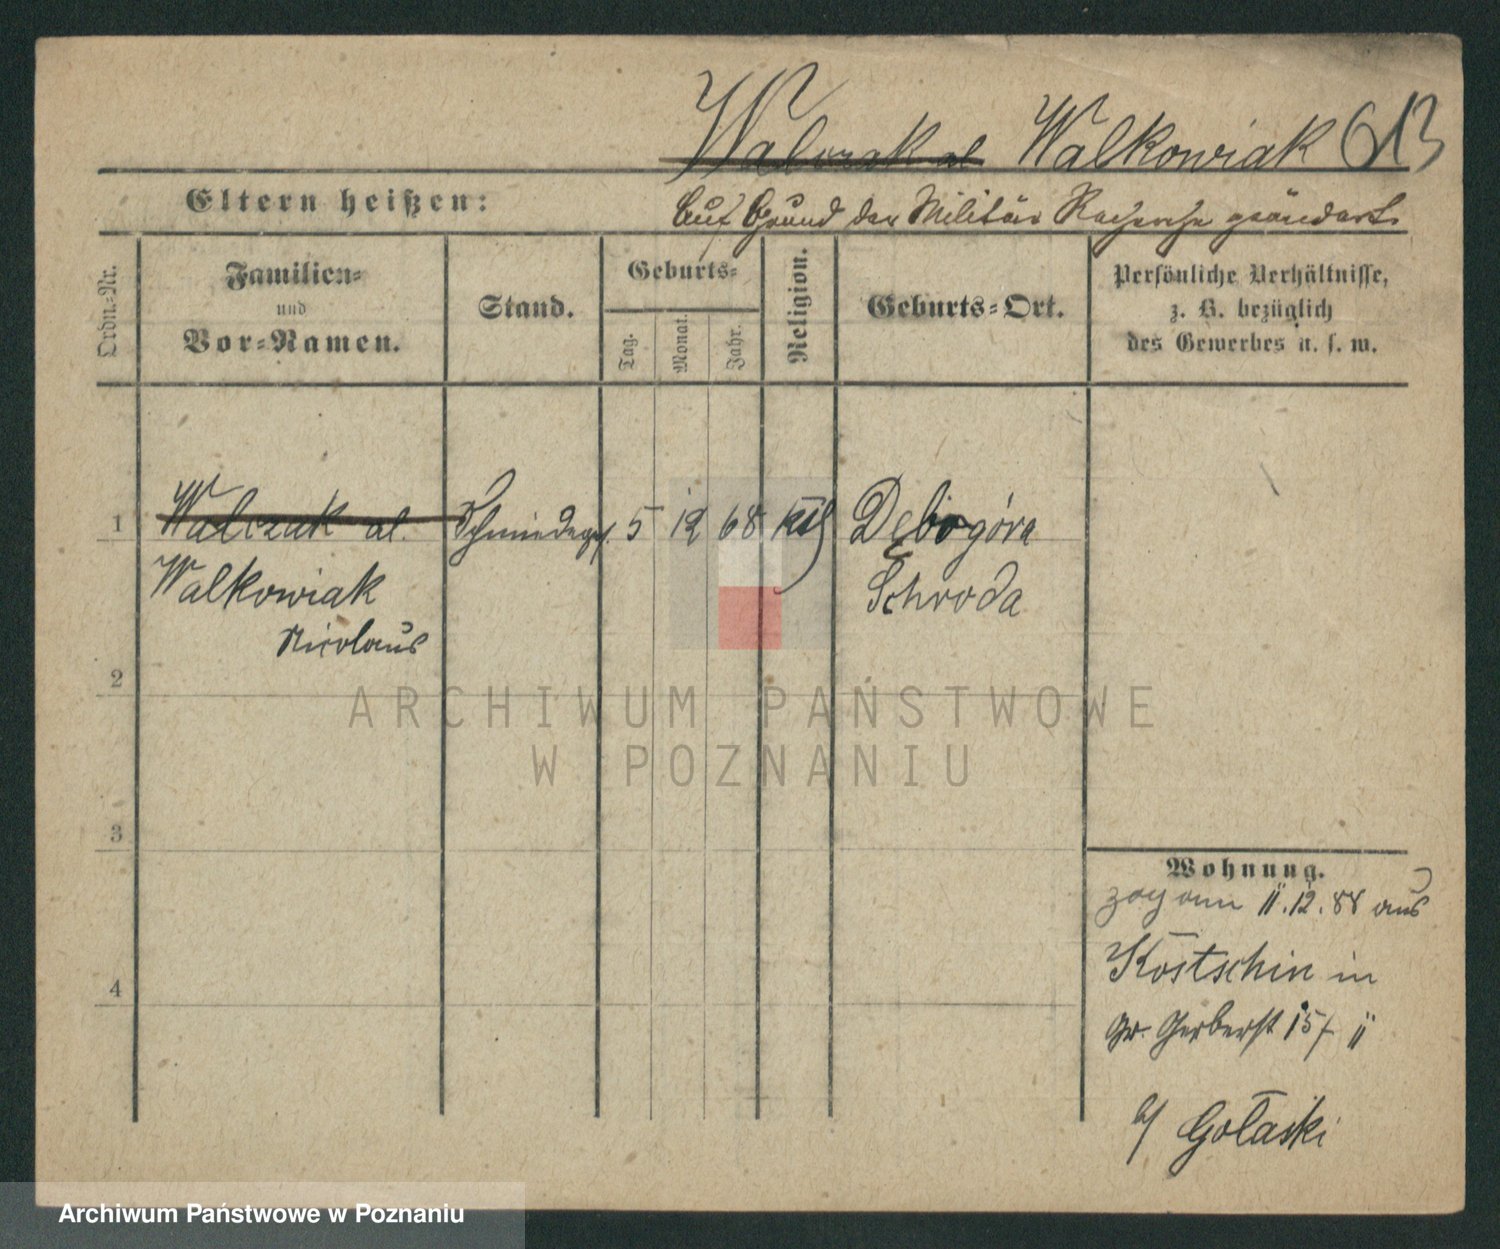 Walczak al Walkowiak 613
Eltern heißen:
Auf Grund der Militär Recherche geändert.
Ordn=Nr.
Familien=
und
Vor=Namen.
Stand.
Geburts=
Tag.
Monat.
Jahr.
Religion.
Geburts=Ort.
Persönliche Verhältnisse,
z. B. bezüglich
des Gewerbes u. s. w.
1 Walczak al. Schmiedeges. 5 12 68 kth Dębogóra
Walkowiak Schroda
Nicolaus
2
3
4
Wohnung.
zog am 11.12.88 aus
Kostschin in
Gr. Gerberst 15/ II
b/ Gołaski
ARCHIWUM PAŃSTWOWE
W POZNANIU
Archiwum Państwowe w Poznaniu